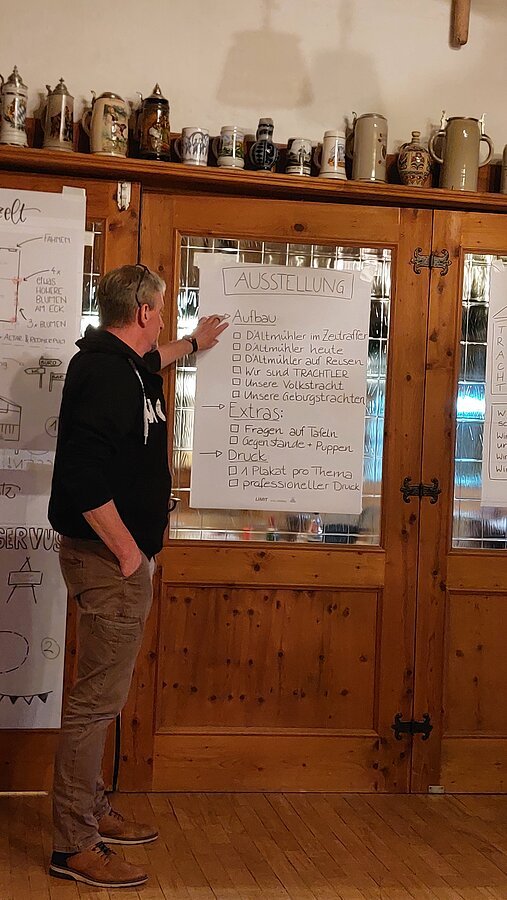 zelt
FAHNEN
4x
ETWAS
HÖHERE
BLUMEN
AM ECK
3x BLUMEN
BÜRO
1
SERVUS
2
AUSSTELLUNG
Aufbau
D'Altmühler im Zeitraffer
D'Altmühler heute
D'Altmühler auf Reisen
Wir sind TRACHTLER
Unsere Volkstracht
Unsere Gebirgstrachten
Extras:
Fragen auf Tafeln
Gegenstände + Puppen
Druck
1 Plakat pro Thema
professioneller Druck
TRACHT